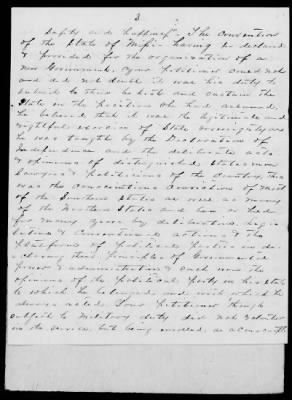 3
Safety and happiness". The Convention
of the State of Missi having so declared
& provided for the organization of a
new Government, your Petitioner could not
and did not doubt it was his duty to
submit to their behests and sustain the
State in the position she had assumed.
he believed that it was the legitimate and
rightful exercise of State Sovereignty as
he was taught by the Declaration of
Independence and the deliberate acts
& opinions of distinguished Statesmen
Lawyers & Politicians of the Country, this
was the conscientious conviction of most
of the Southern States as well as many
of the Northern States and has so had
for many years by declarations, legis
lative & Conventional actions & the
platforms of political parties in de
claring these principles of Governmental
power & administration & such were the
opinions of the political party in his State
to which he belonged and with which he
always acted. Your petitioner though
subject to Military duty did not volunteer
in the service, but being enrolled as a Conscript